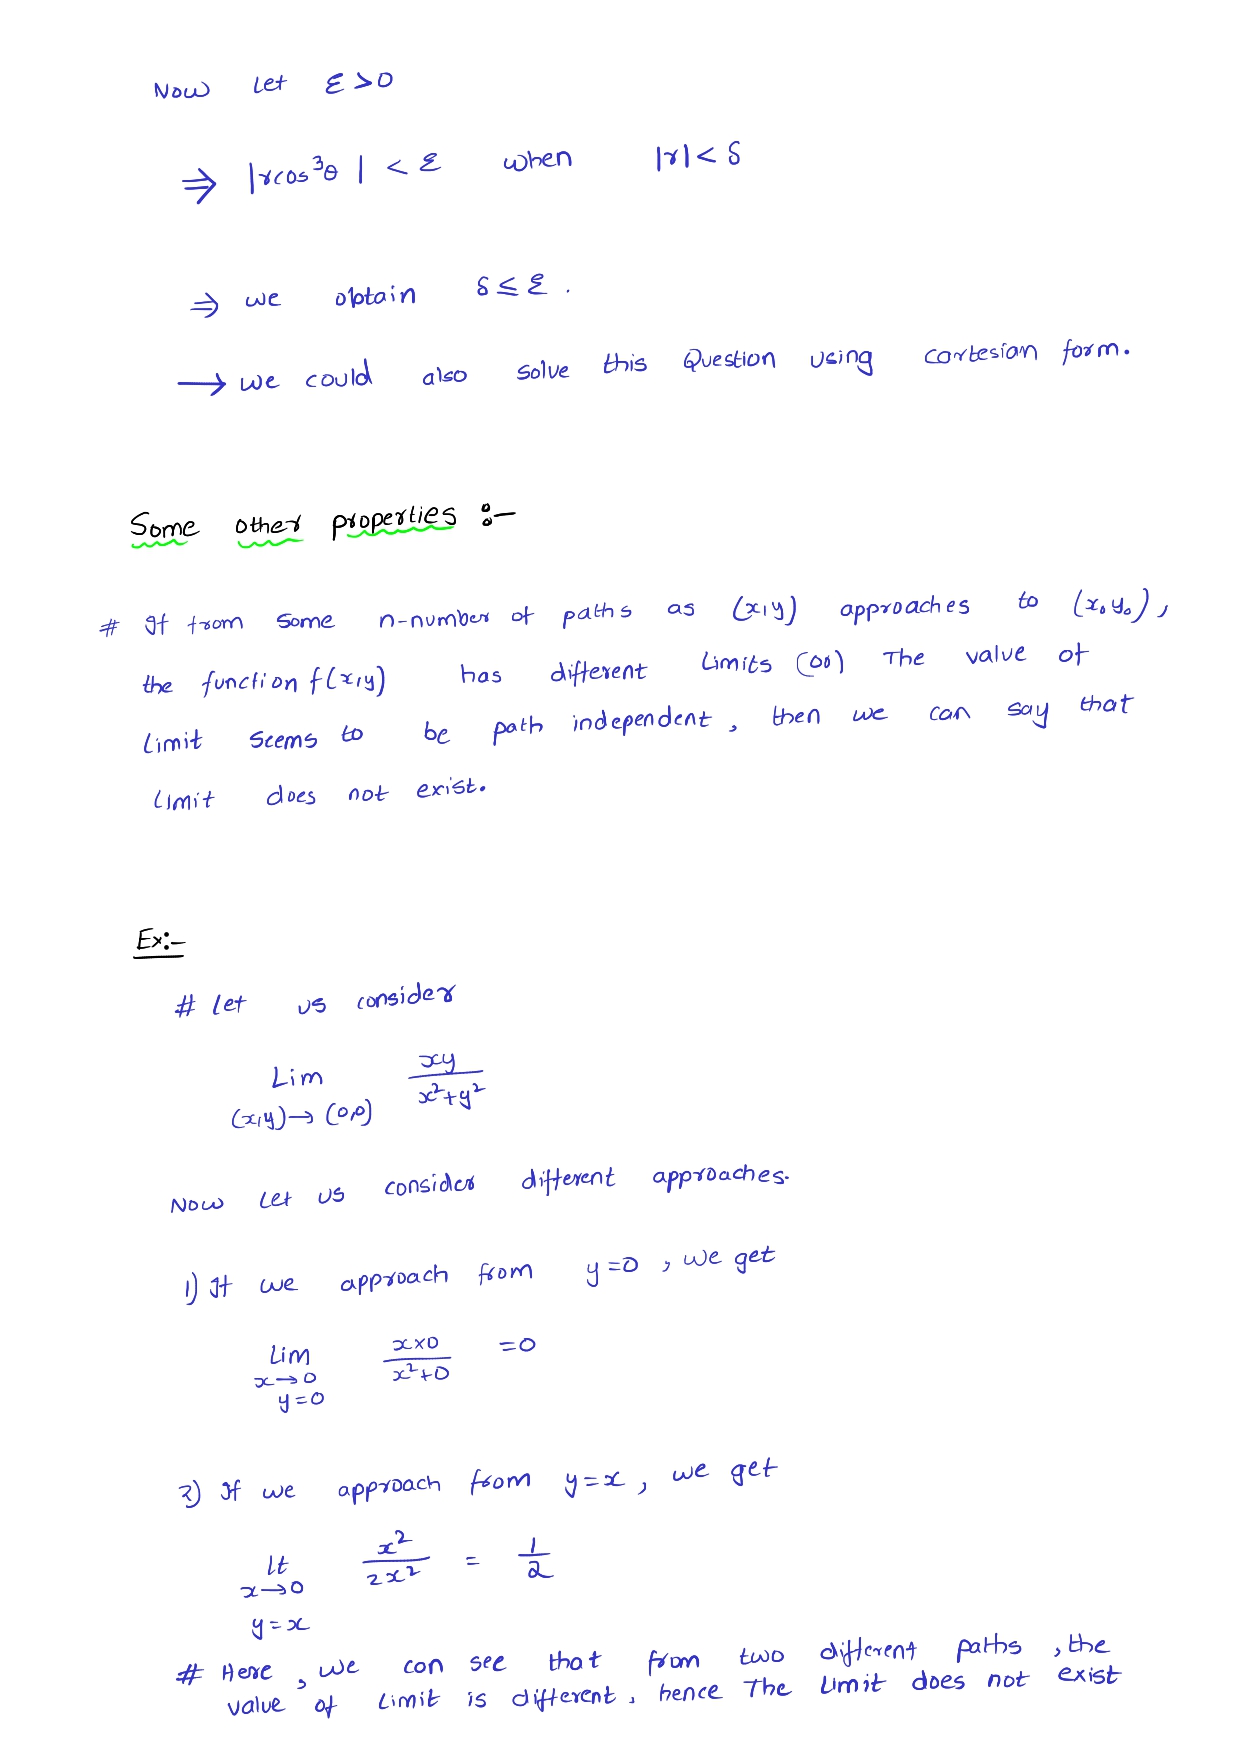 Now Let ε>0
⇒ |rcos³θ| < ε when |r|< δ
⇒ we obtain δ ≤ ε .
→ we could also solve this Question using cartesian form.
Some other properties :-
# If from some n-number of paths as (x,y) approaches to (x₀ y₀) ,
the function f(x,y) has different Limits (or) The value of
Limit seems to be path independent , then we can say that
Limit does not exist.
Ex:-
# Let us consider
Lim xy
(x,y)→(0,0) x²+y²
Now Let us consider different approaches.
1) If we approach from y=0 , we get
Lim x×0 =0
x→0 x²+0
y=0
2) If we approach from y=x , we get
Lt x² = 1
x→0 2x² 2
y=x
# Here , we can see that from two different paths , the
value of Limit is different , hence The Limit does not exist